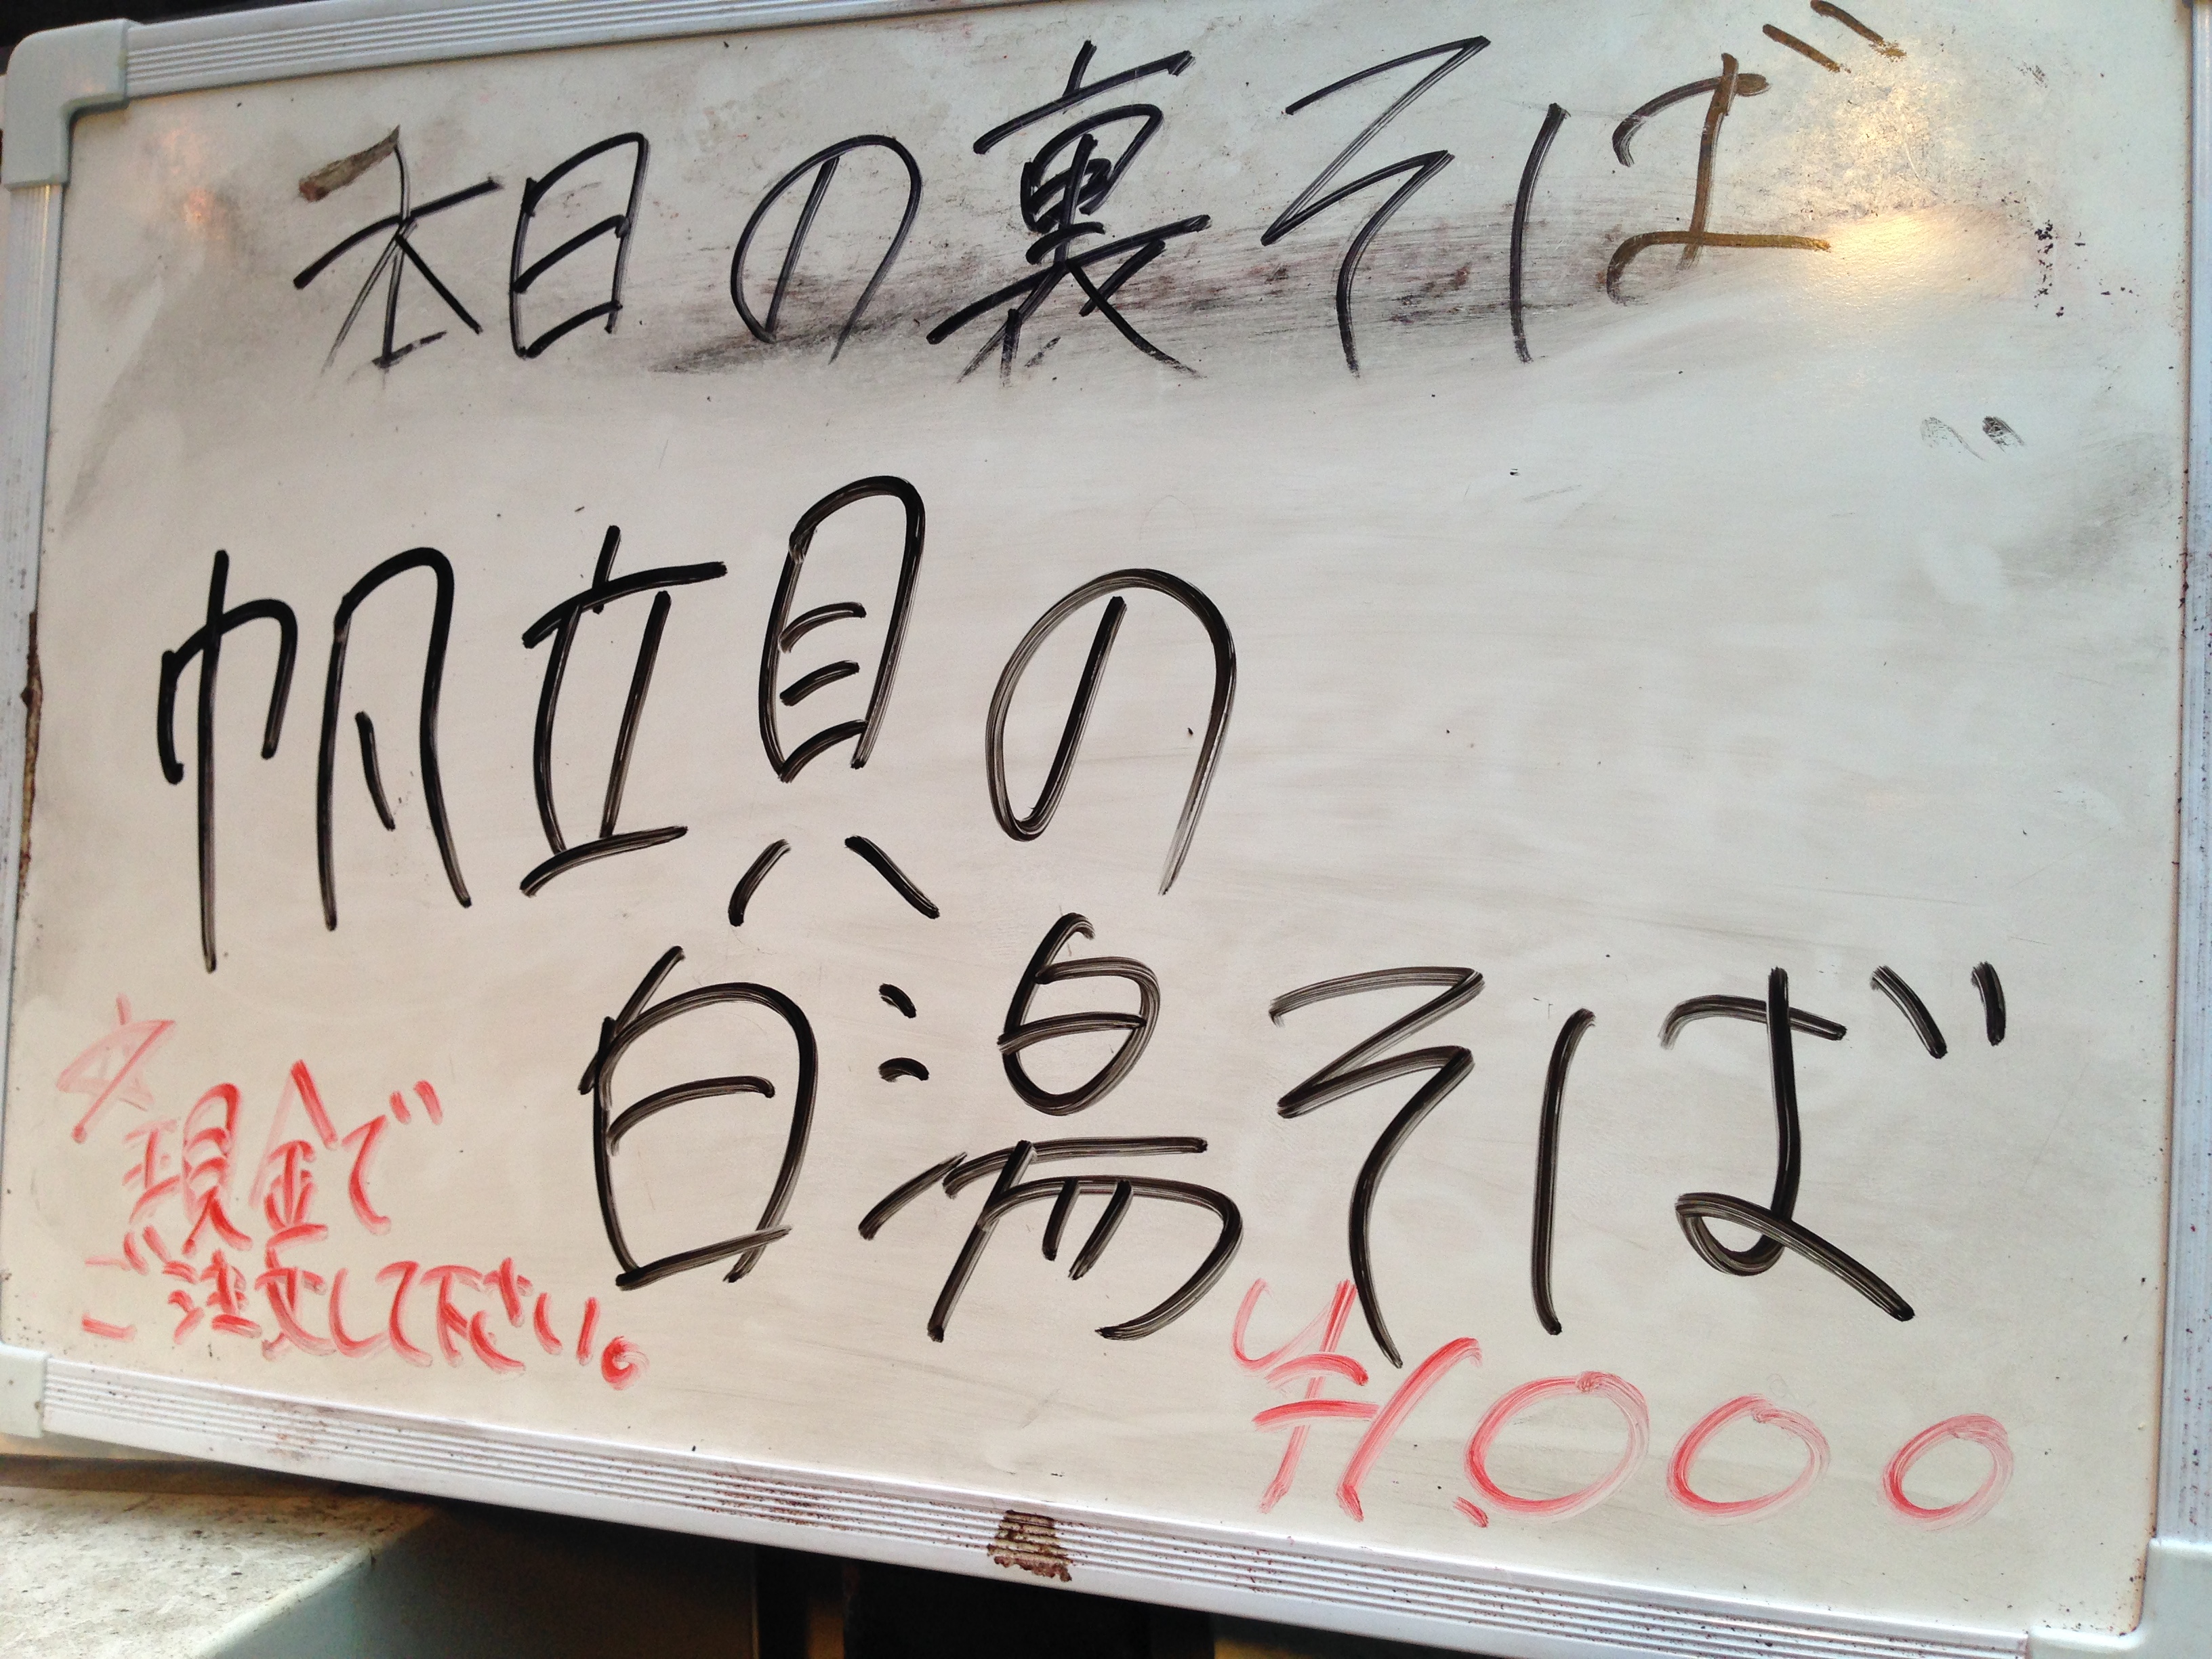 本日の裏そば
帆立貝の
白湯そば
☆現金で
ご注文して下さい。
¥1,000